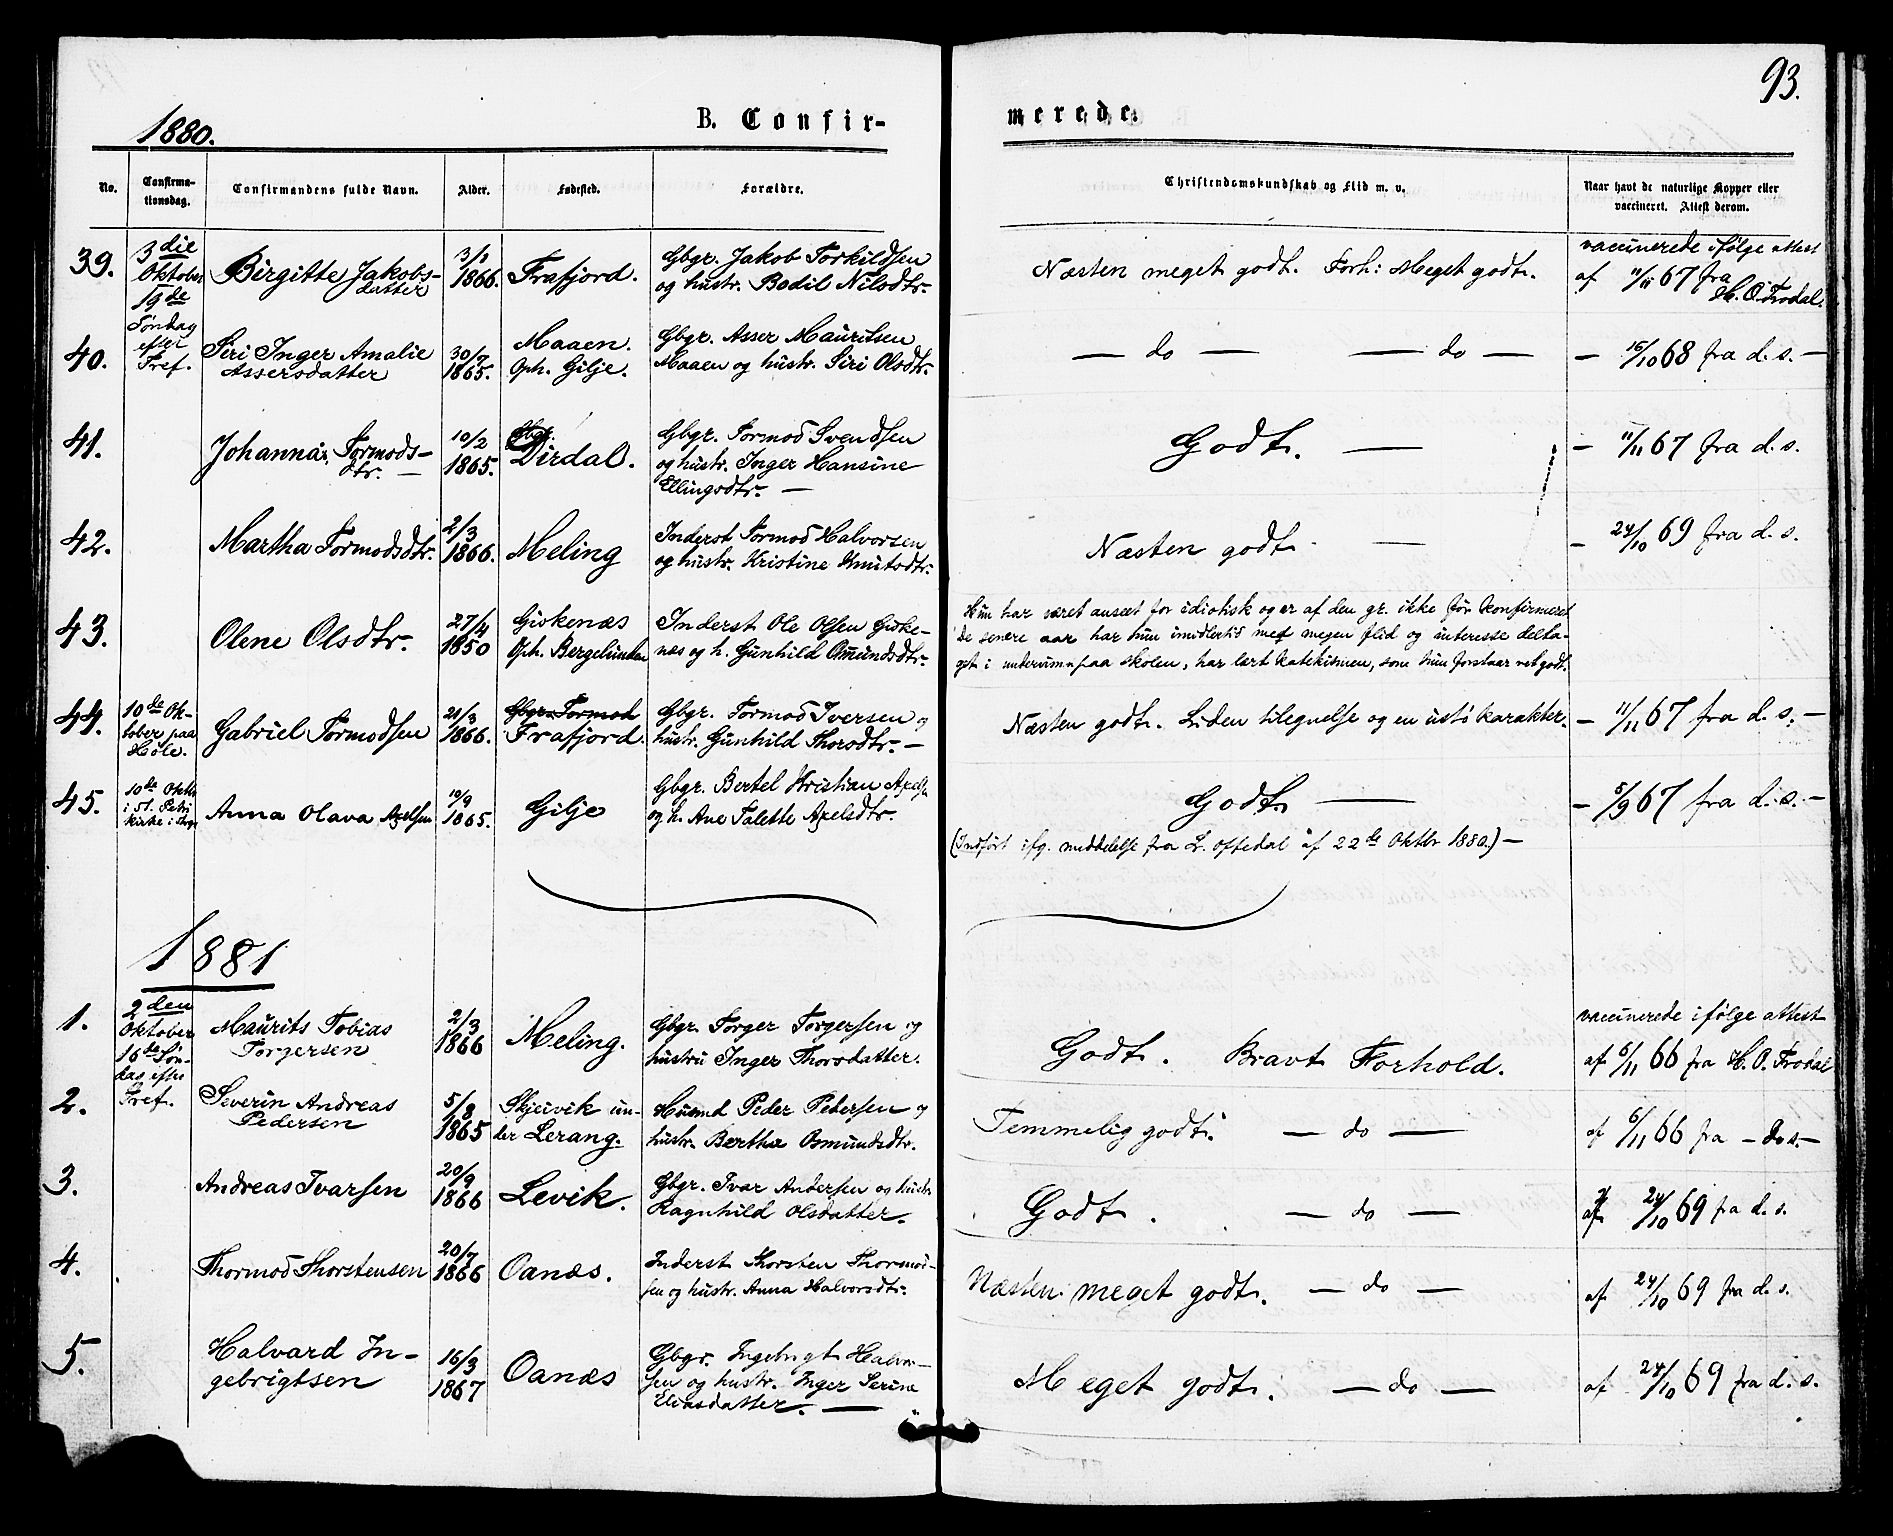 93.
1880.
B. Confir-
merede.
No.
Confirma-
tionsdag.
Confirmandens fulde Navn.
Alder.
Fødested.
Forældre.
Christendomskundskab og Flid m. v.
Naar havt de naturlige Kopper eller
vaccineret. Attest derom.
39.
3die
Oktober
19de
Søndag
efter
Tref.
Birgitte Jakobs-
datter
1866.
Frafjord.
Gbgr. Jakob Torkildsen
og hustr. Bodil Nilsdtr.
Næsten meget godt. Forh: Meget godt.
vaccinerede ifølge attest
af 11/11 67 fra
H. O. Frodal
40.
Siri Inger Amalie
Assersdatter
30/7
1865.
Maaen.
Oph. Gilje.
Gbgr. Asser Mauritsen
Maaen og hustr. Siri Olsdtr.
— do — — do —
— 16/10 68 fra d. s. —
41.
Johanna Tormods-
dtr. —
10/2
1865.
Dirdal.
Gbgr. Tormod Svendsen
og hustr. Inger Hansine
Ellingsdtr. —
Godt. —
— 11/11 67 fra d. s.
42.
Martha Tormodsdtr.
2/3
1866.
Meling
Inderst Tormod Halvorsen
og hustr. Kristine Knutsdtr.
Næsten godt. —
— 24/10 69 fra d. s.
43.
Olene Olsdtr.
27/4
1850
Giskenæs
Oph. Bergelunden
Inderst Ole Olsen Giske-
næs og h. Gunhild Omundsdtr.
Hun har været anseet for idiotisk og er af den gr. ikke før konfirmeret
De senere aar har hun imidlertid med megen flid og interesse delta-
get i undervisn. paa skolen, har lært katekismen, som hun forstaar ret godt.
44.
10de Ok-
tober paa
Høle.
Gabriel Tormodsen
21/3
1866.
Gbgr. Tormod
Frafjord.
Gbgr. Tormod Iversen og
hustr. Gunhild Thorsdtr. —
Næsten godt. Liden tilegnelse og en ustø karakter.
— 11/11 67 fra d. s. —
45.
10de Oktbr
i St. Petri
kirke i
Anna Olava Axelsen
10/9
1865.
Gilje
Gbgr. Bertel Kristian Axelsen
og h. Ane Talette Axelsdtr.
Godt. —
— 5/9 67 fra d. s. —
(Indført ifg. meddelelse fra L. Oftedal af 22de Oktbr 1880.) —
1881
1.
2den
Oktober
16de Søn-
dag efter
Tref.
Maurits Tobias
Torgersen
2/3
1866
Meling.
Gbgr. Torger Torgersen og
hustru Inger Thorsdatter.
Godt. Bravt Forhold.
vaccinerede ifølge attest
af 6/11 66 fra H. O. Frodal
2.
Severin Andreas
Pedersen
5/8
1865
Skjeivik un-
der Lerang.
Husmd Peder Pedersen og
hustr. Bertha Osmundsdtr.
Temmelig godt. — do —
af 6/11 66 fra — do s. —
3.
Andreas Ivarsen
20/9
1866
Levik.
Gbgr. Ivar Andersen og hustr
Ragnhild Olsdatter.
Godt. — do —
af 24/10 69 fra d. s.
4.
Thormod Thorstensen
20/7
1866
Oanæs.
Inderst Thorsten Thormod-
sen og hustr. Anna Halvorsdtr.
Næsten meget godt. — do —
af 24/10 69 fra d. s.
5.
Halvard In-
gebrigtsen
16/3
1867
Oanæs
Gbgr. Ingebrigt Halvor-
sen og hustr. Inger Serine
Eliasdatter. —
Meget godt. — do —
af 24/10 69 fra d. s.